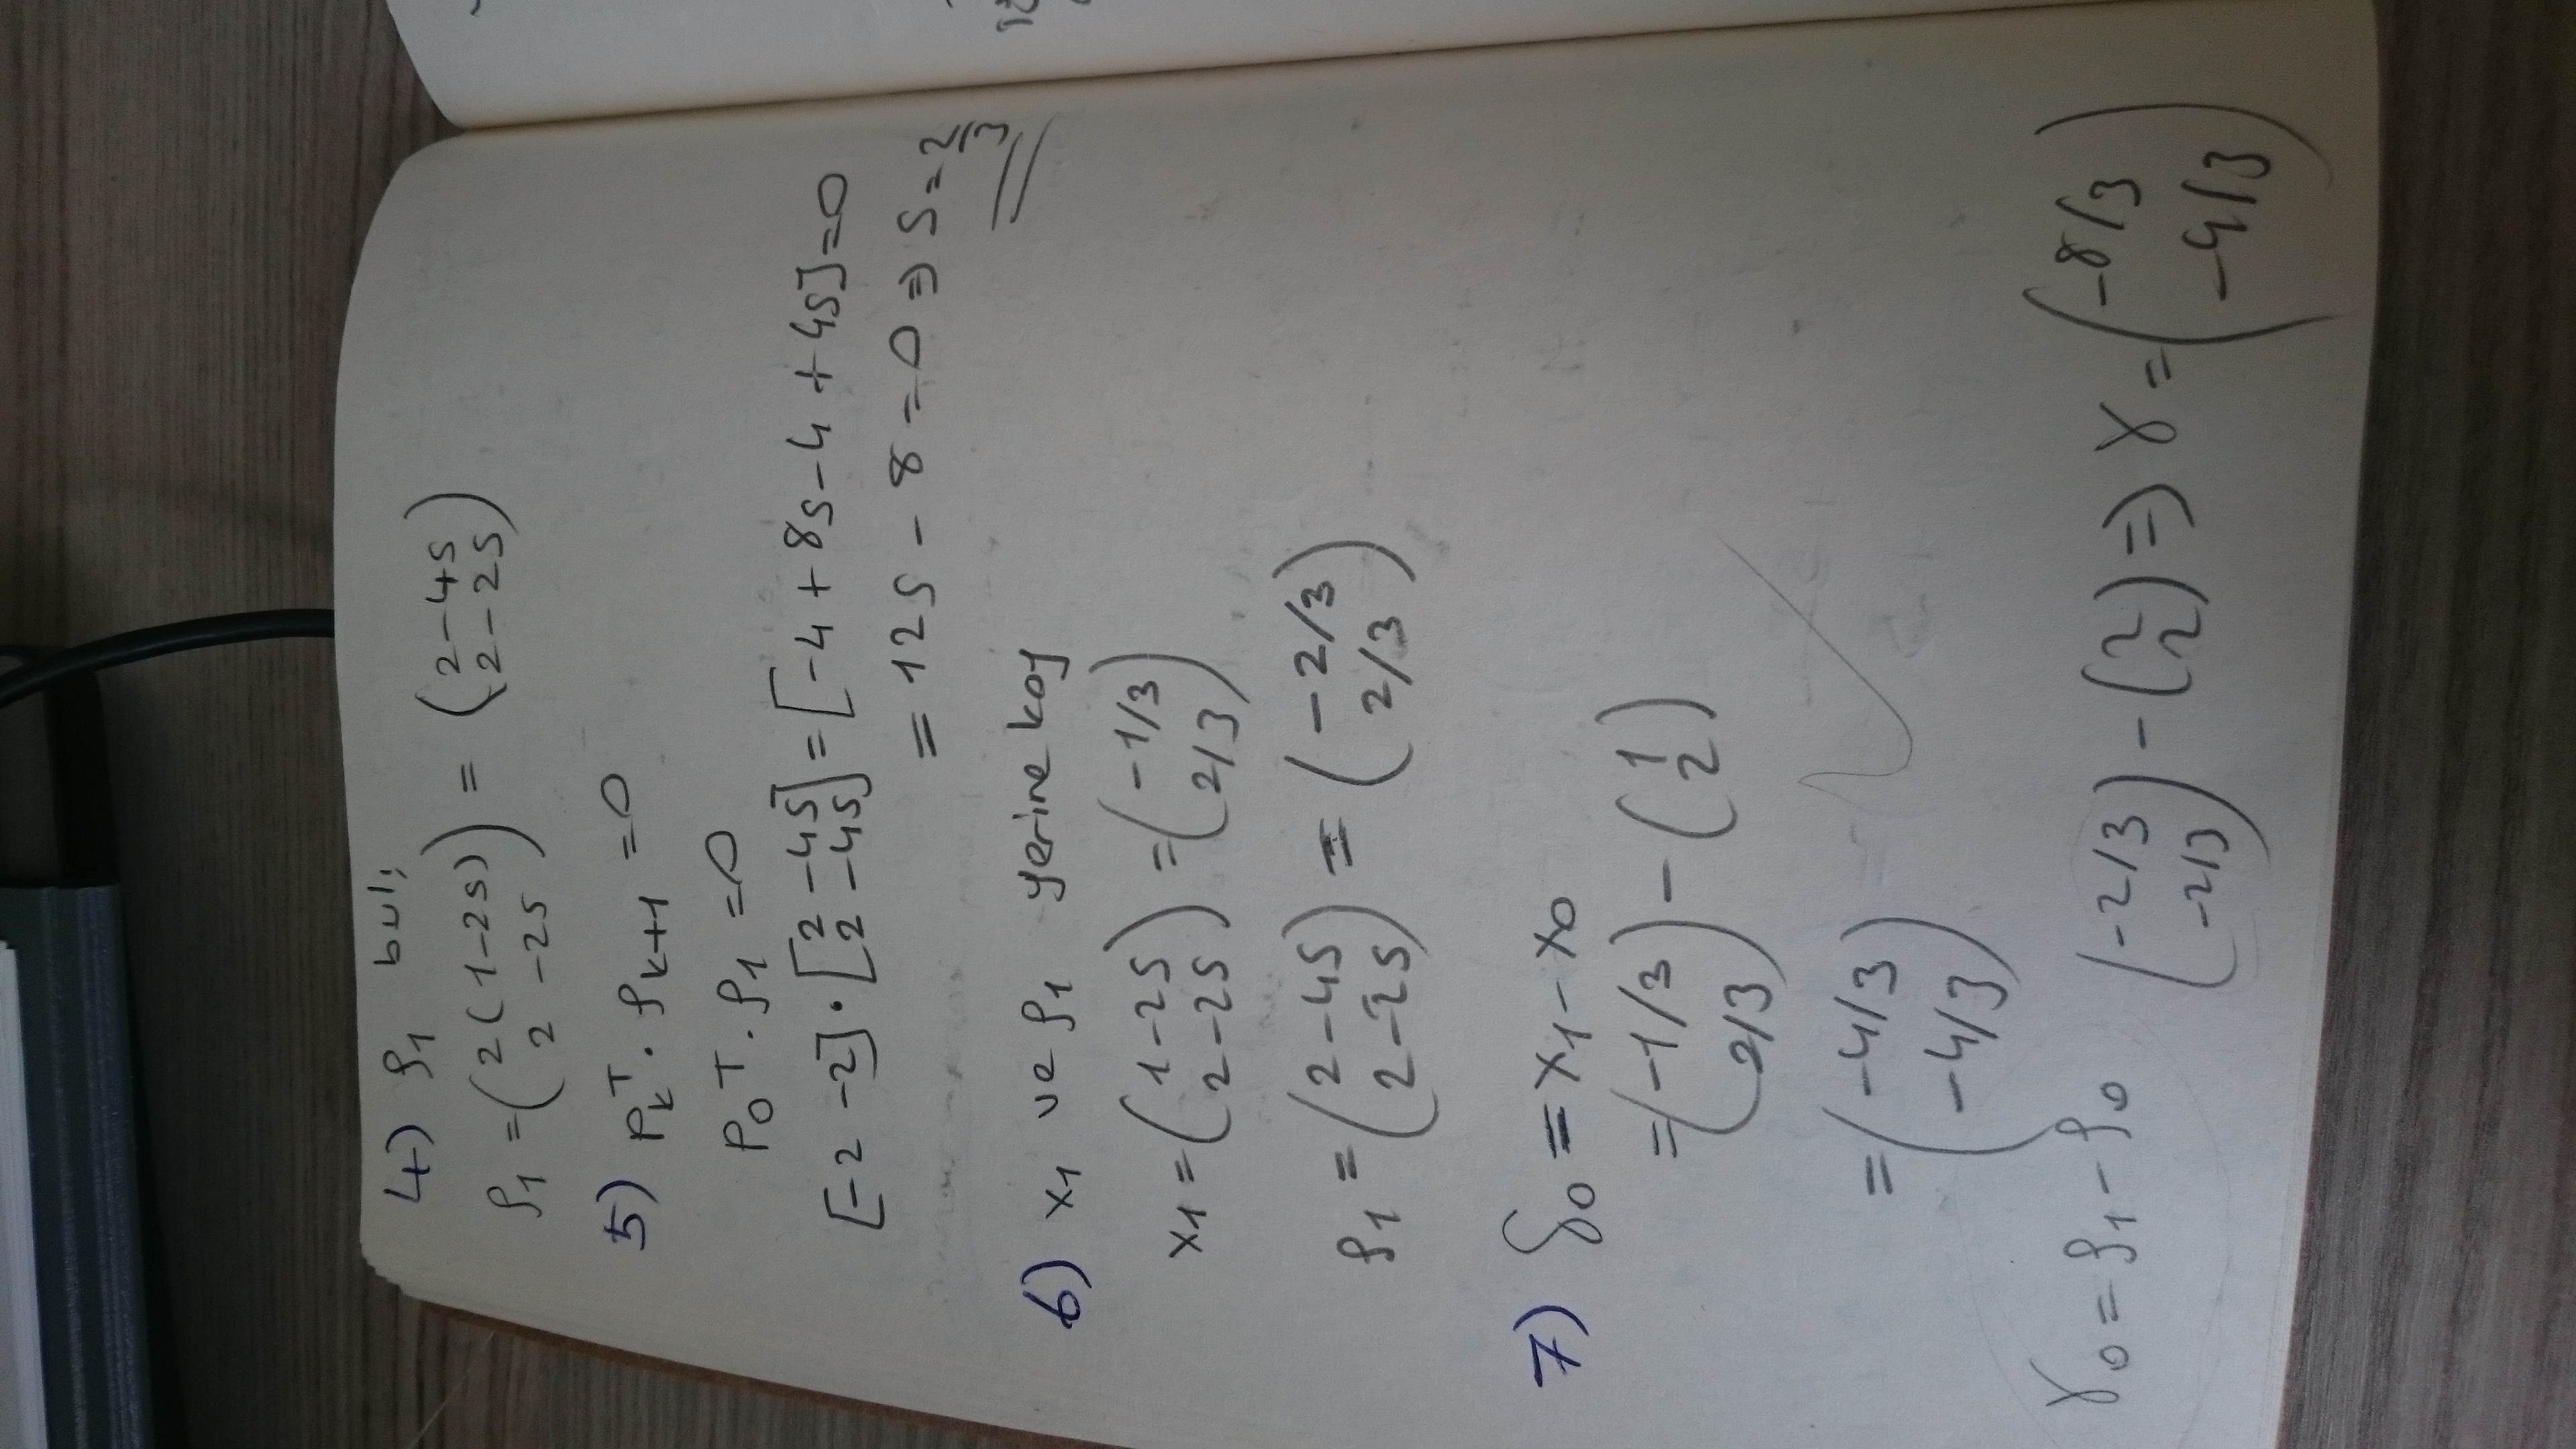 4) ρ1 bul;
ρ1 = (2(1-2s) ; 2 -2s) = (2-4s ; 2-2s)
5) Pk^T . ρk+1 = 0
P0^T . ρ1 = 0
[-2 -2] . [2 -4s ; 2 -4s] = [-4 + 8s - 4 + 4s] = 0
= 12s - 8 = 0 ⇒ s = 2/3
6) x1 ve ρ1 yerine koy
x1 = (1-2s ; 2-2s) = (-1/3 ; 2/3)
ρ1 = (2-4s ; 2-2s) = (-2/3 ; 2/3)
7) δ0 = x1 - x0
= (-1/3 ; 2/3) - (1 ; 2)
= (-4/3 ; -4/3)
γ0 = ρ1 - ρ0 (-2/3 ; -2/3) - (2 ; 2) ⇒ γ = (-8/3 ; -4/3)